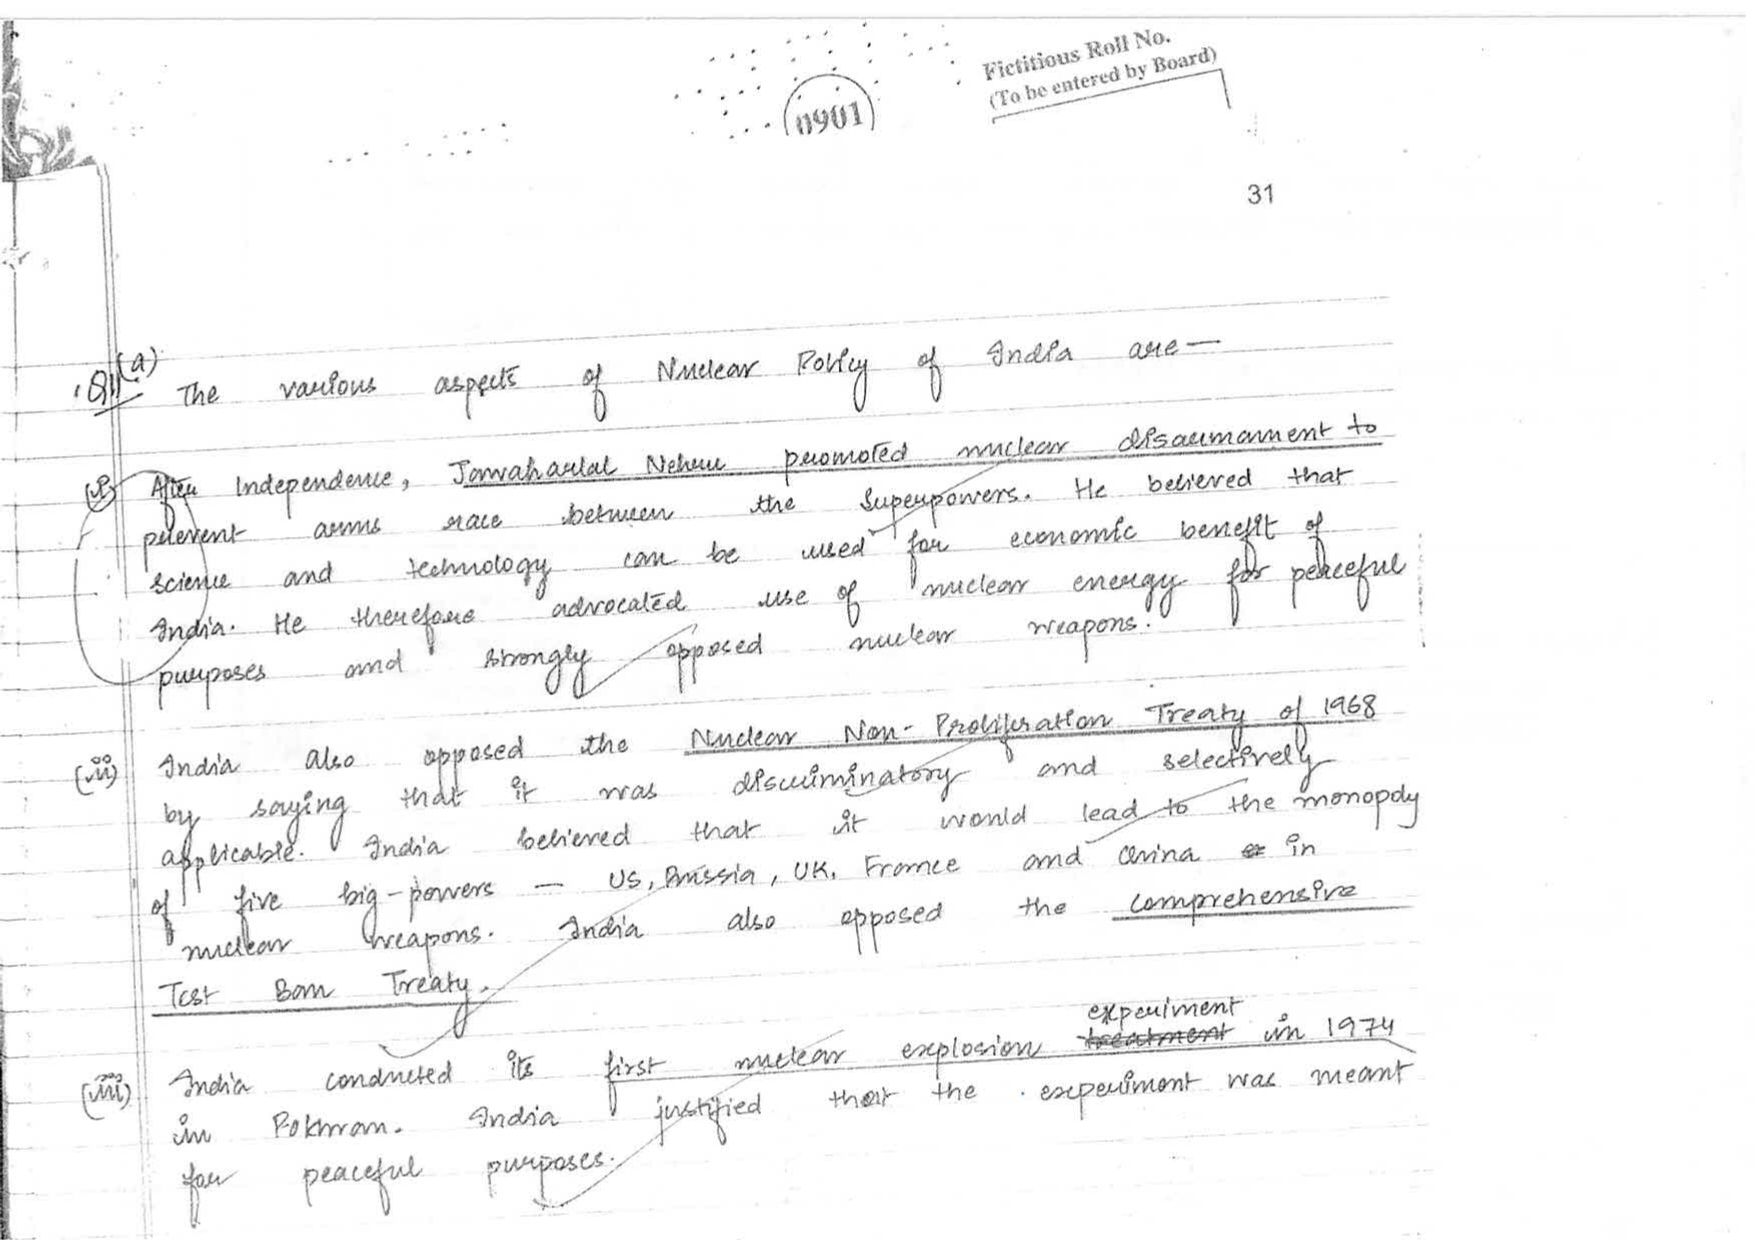 Fictitious Roll No.
(To be entered by Board)
0901
31
(a)
The various aspects of Nuclear Policy of India are—
(i) After Independence, Jawaharlal Nehru promoted nuclear disarmament to
prevent arms race between the Superpowers. He believed that
science and technology can be used for economic benefit of
India. He therefore advocated use of nuclear energy for peaceful
purposes and strongly opposed nuclear weapons.
(ii) India also opposed the Nuclear Non-Proliferation Treaty of 1968
by saying that it was discriminatory and selectively
applicable. India believed that it would lead to the monopoly
of five big-powers — US, Russia, UK, France and China in
nuclear weapons. India also opposed the Comprehensive
Test Ban Treaty.
experiment
(iii) India conducted its first nuclear explosion treatment in 1974
in Pokhran. India justified that the experiment was meant
for peaceful purposes.